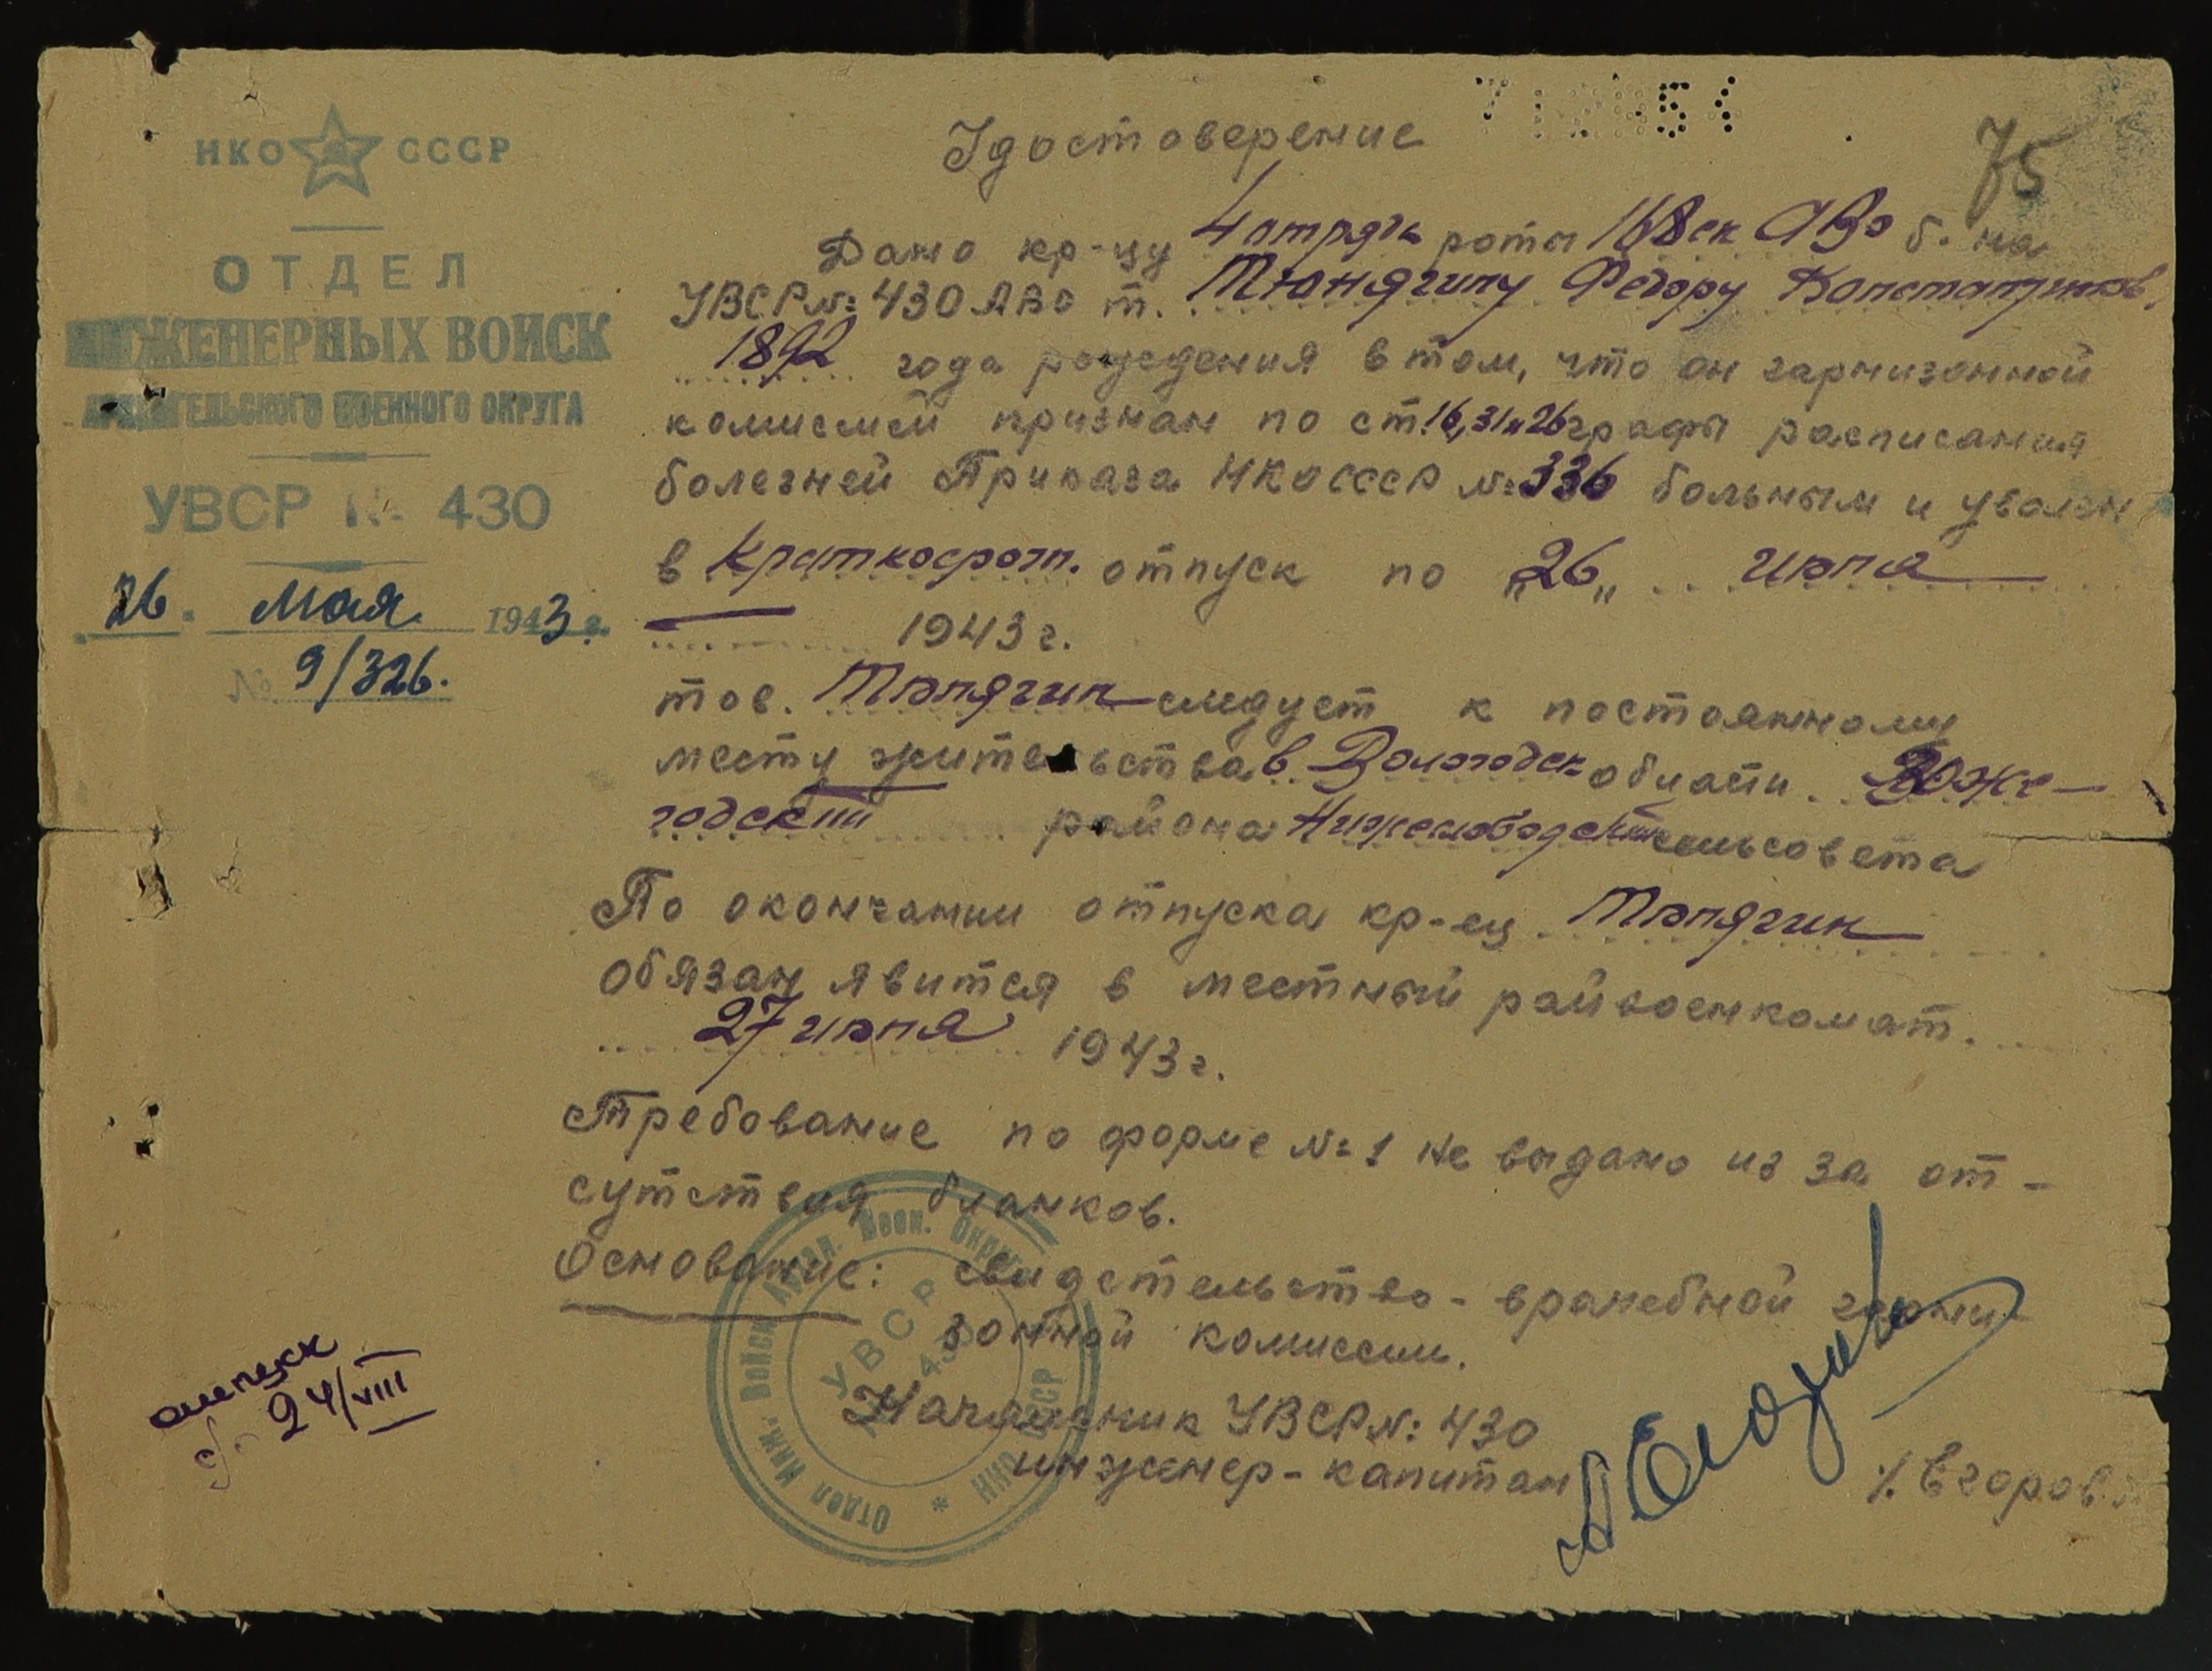 НКО СССР
ОТДЕЛ
ИНЖЕНЕРНЫХ ВОЙСК
АРХАНГЕЛЬСКОГО ВОЕННОГО ОКРУГА
УВСР № 430
26. мая 1943 г.
№ 9/326.
75
Удостоверение
Дано кр-цу 4 отряда роты 168 ск АВО б. на
УВСР № 430 АВО т. Тюнягину Федору Константинов.
1892 года рождения в том, что он гарнизонной
комиссией признан по ст. 16, 31 и 26 графы расписания
болезней Приказа НКО СССР № 336 больным и уволен
в краткосроч. отпуск по „26„ июля
1943 г.
тов. Тюнягин следует к постоянному
месту жительства в Вологодск области Воже-
годский района сельсовета
По окончании отпуска кр-ец Тюнягин
обязан явится в местный райвоенкомат.
27 июля 1943 г.
Требование по форме № 1 не выдано из за от-
сутствия бланков.
Основание: свидетельство - врачебной гарни-
зонной комиссии.
Начальник УВСР № 430
инженер-капитан /. Егоров./
Отдел Инж. Войск Архан. Воен. Округа
НКО СССР
УВСР
№ 430
отпуск
24/VIII